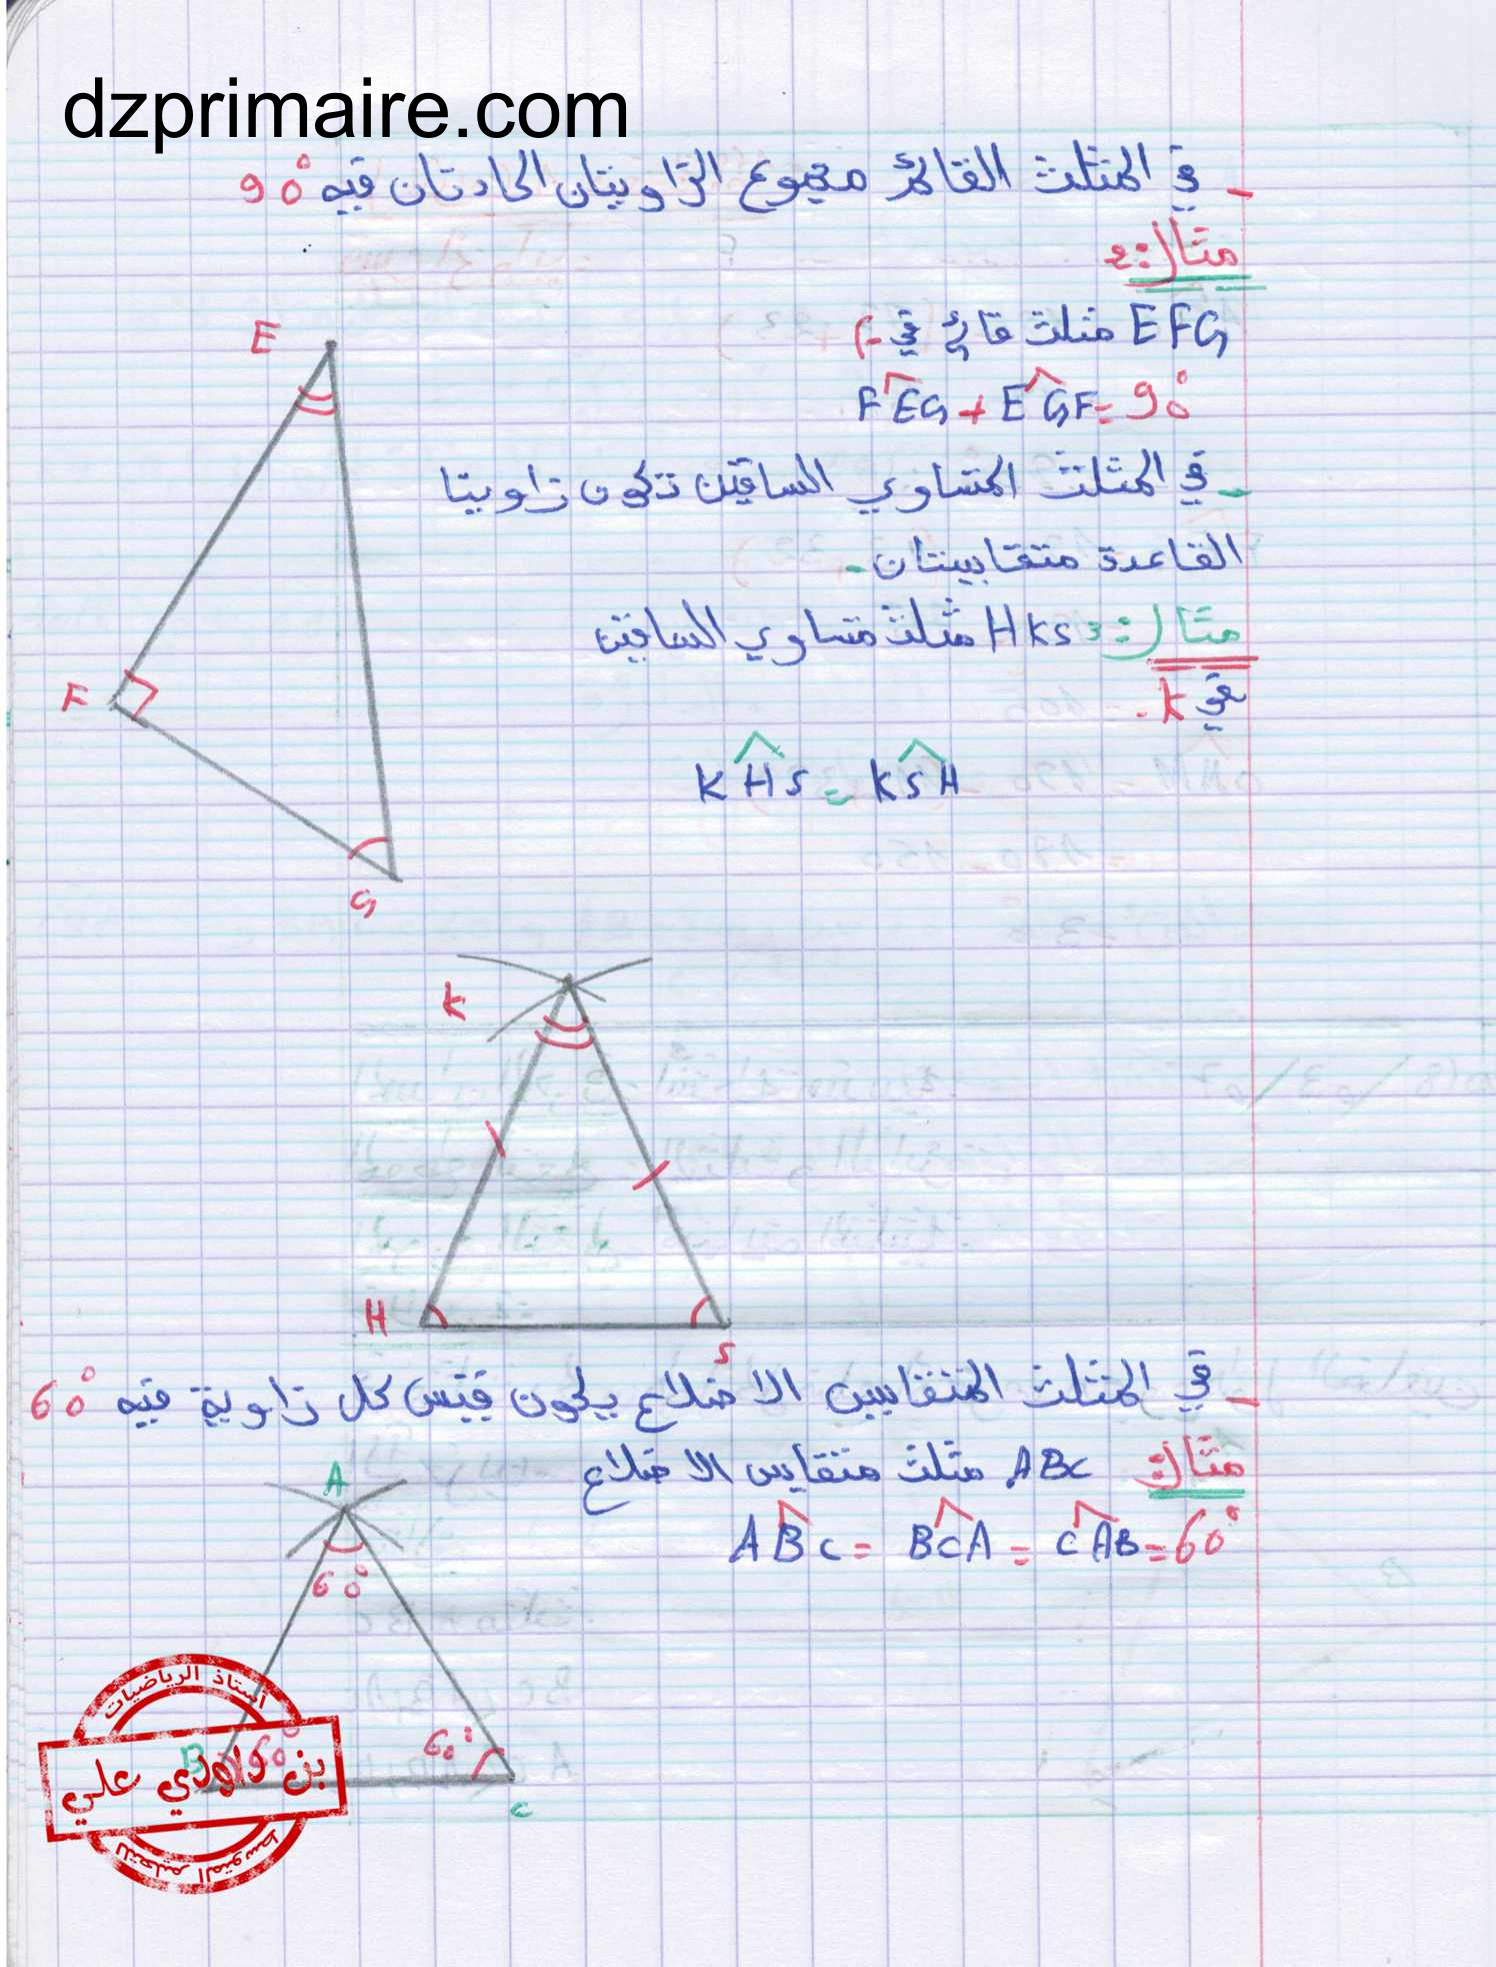 dzprimaire.com
- في المثلث القائم مجموع الزاويتان الحادتان فيه 90°
مثال 2:
EFG مثلث قائم في F
FÊG + EĜF = 90°
- في المثلث المتساوي الساقين تكون زاويتا
القاعدة متقايستان -
مثال 3: HKS مثلث متساوي الساقين
في K.
KĤS = KŜH
E
F
G
K
H
S
- في المثلث المتقايس الاضلاع يكون قيس كل زاوية فيه 60°
مثال: ABC مثلث متقايس الاضلاع
AB̂C = BĈA = CÂB = 60°
A
60°
B 60°
60°
C
أستاذ الرياضيات
بن داودي علي
للتعليم المتوسط